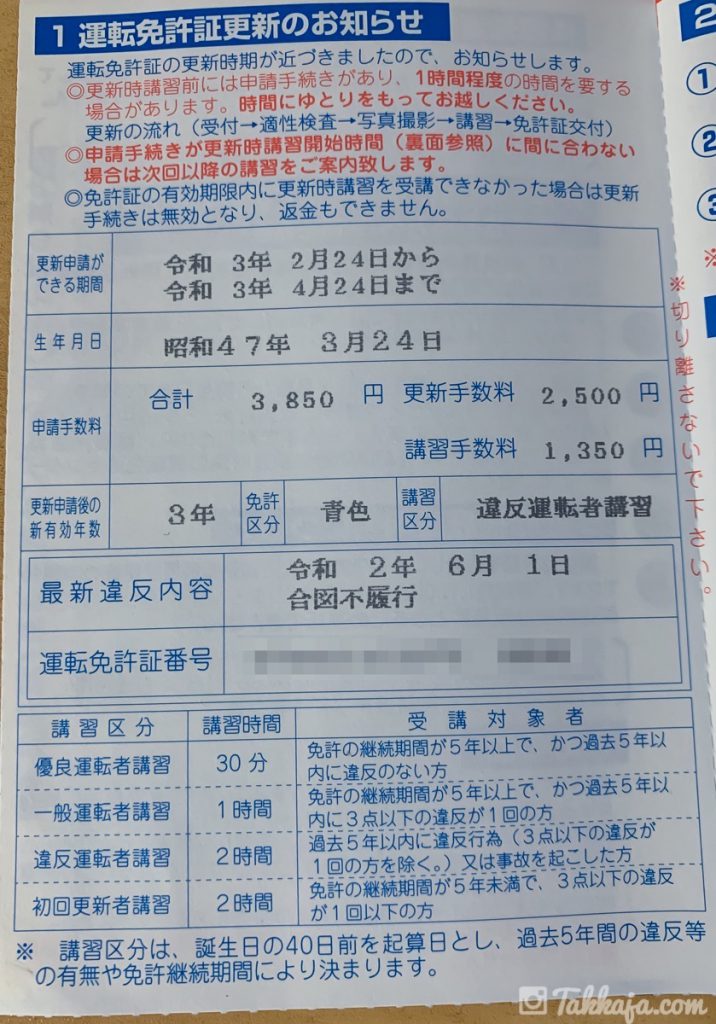 1 運転免許証更新のお知らせ
運転免許証の更新時期が近づきましたので、お知らせします。
◎更新時講習前には申請手続きがあり、1時間程度の時間を要する
場合があります。時間にゆとりをもってお越しください。
更新の流れ（受付→適性検査→写真撮影→講習→免許証交付）
◎申請手続きが更新時講習開始時間（裏面参照）に間に合わない
場合は次回以降の講習をご案内致します。
◎免許証の有効期限内に更新時講習を受講できなかった場合は更新
手続きは無効となり、返金もできません。
更新申請が
できる期間
令和 3年 2月24日から
令和 3年 4月24日まで
生年月日
昭和47年 3月24日
申請手数料
合計 3,850 円 更新手数料 2,500 円
講習手数料 1,350 円
更新申請後の
新有効年数
3年
免許
区分
青色
講習
区分
違反運転者講習
最新違反内容
令和 2年 6月 1日
合図不履行
運転免許証番号
講習区分 講習時間 受講対象者
優良運転者講習 30分 免許の継続期間が5年以上で、かつ過去5年以
内に違反のない方
一般運転者講習 1時間 免許の継続期間が5年以上で、かつ過去5年以
内に3点以下の違反が1回の方
違反運転者講習 2時間 過去5年以内に違反行為（3点以下の違反が
1回の方を除く。）又は事故を起こした方
初回更新者講習 2時間 免許の継続期間が5年未満で、3点以下の違反
が1回以下の方
※ 講習区分は、誕生日の40日前を起算日とし、過去5年間の違反等
の有無や免許継続期間により決まります。
※切り離さないで下さい。
2
①
②
③
※
Takkaja.com